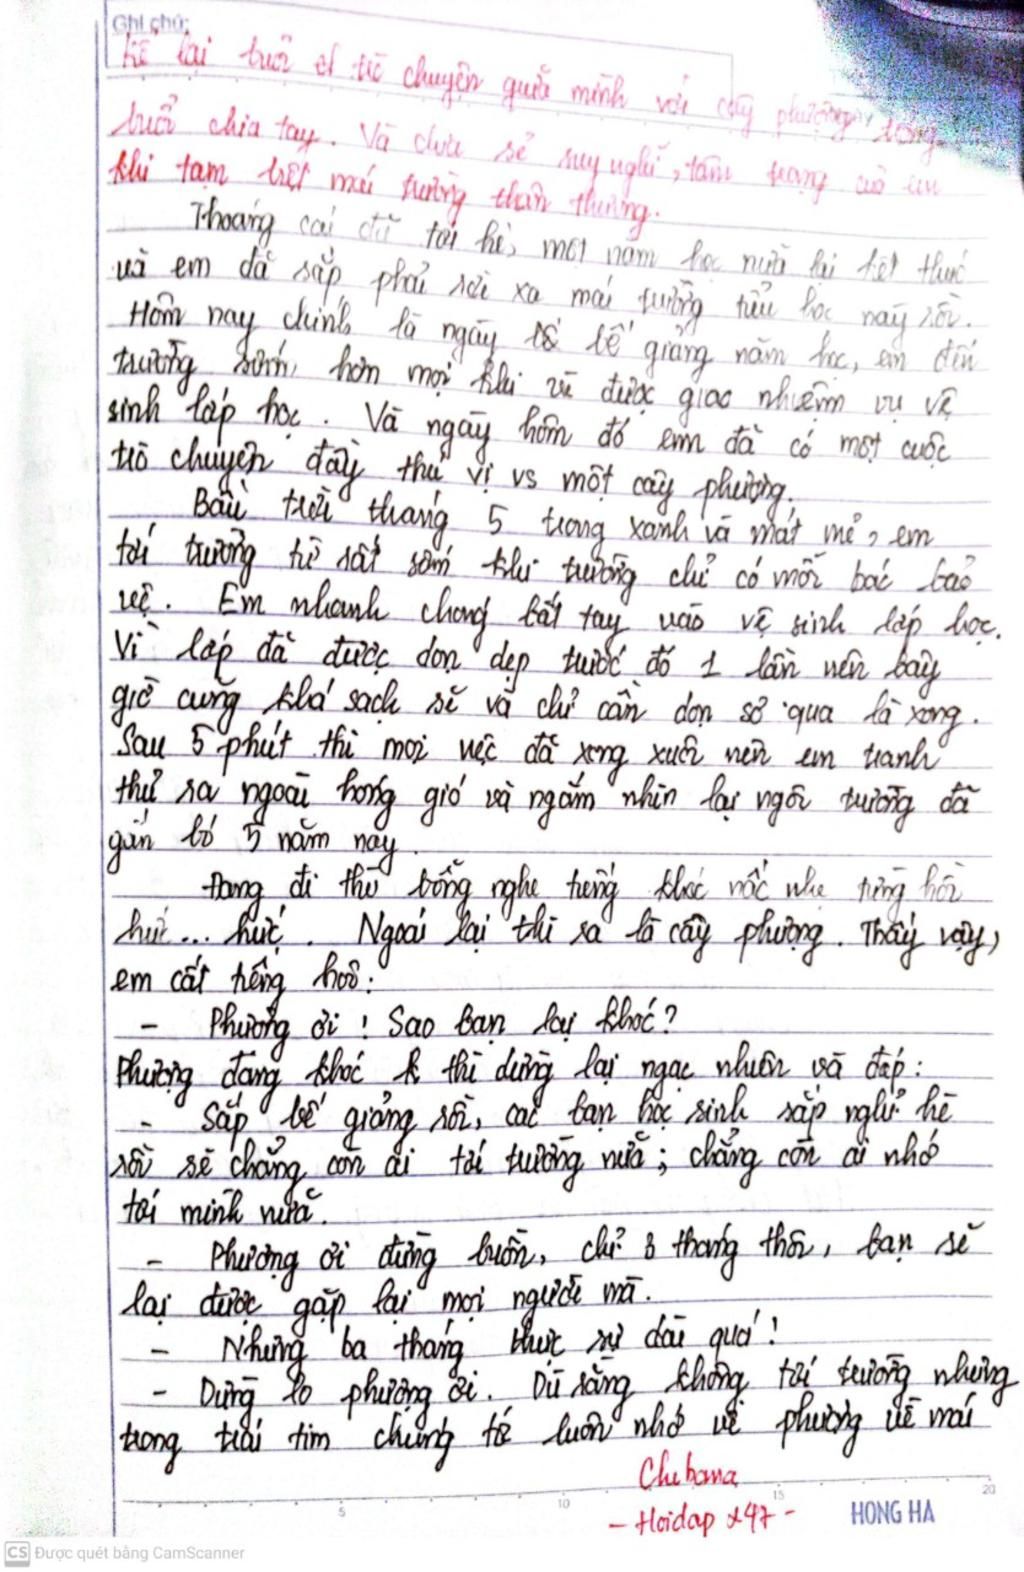 Ghi chú:
Kể lại buổi trò chuyện giữa mình với cây phượng trong
buổi chia tay. Và chia sẻ suy nghĩ, tâm trạng của em
khi tạm biệt mái trường thân thương.
Thoáng cái đã tới hè, một năm học nữa lại kết thúc
và em đã sắp phải rời xa mái trường tiểu học này rồi.
Hôm nay chính là ngày lễ bế giảng năm học, em đến
trường sớm hơn mọi khi vì được giao nhiệm vụ vệ
sinh lớp học. Và ngày hôm đó em đã có một cuộc
trò chuyện đầy thú vị vs một cây phượng.
Bầu trời tháng 5 trong xanh và mát mẻ, em
tới trường từ rất sớm khi trường chỉ có mỗi bác bảo
vệ. Em nhanh chóng bắt tay vào vệ sinh lớp học.
Vì lớp đã được dọn dẹp trước đó 1 lần nên bây
giờ cũng khá sạch sẽ và chỉ cần dọn sơ qua là xong.
Sau 5 phút thì mọi việc đã xong xuôi nên em tranh
thủ ra ngoài hóng gió và ngắm nhìn lại ngôi trường đã
gắn bó 5 năm nay.
Đang đi thì bỗng nghe tiếng khóc nấc nhẹ từng hồi
hức... hức. Ngoái lại thì ra là cây phượng. Thấy vậy,
em cất tiếng hỏi:
- Phượng ơi! Sao bạn lại khóc?
Phượng đang khóc thì dừng lại ngạc nhiên và đáp:
- Sắp bế giảng rồi, các bạn học sinh sắp nghỉ hè
rồi sẽ chẳng còn ai tới trường nữa; chẳng còn ai nhớ
tới mình nữa.
- Phượng ơi đừng buồn, chỉ 3 tháng thôi, bạn sẽ
lại được gặp lại mọi người mà.
- Nhưng ba tháng thực sự dài quá!
- Đừng lo phượng ơi. Dù rằng không tới trường nhưng
trong trái tim chúng tớ luôn nhớ về phượng về mái
Chibana
- Hoidap 247 -
5 10 15 20
HONG HA
CS Được quét bằng CamScanner